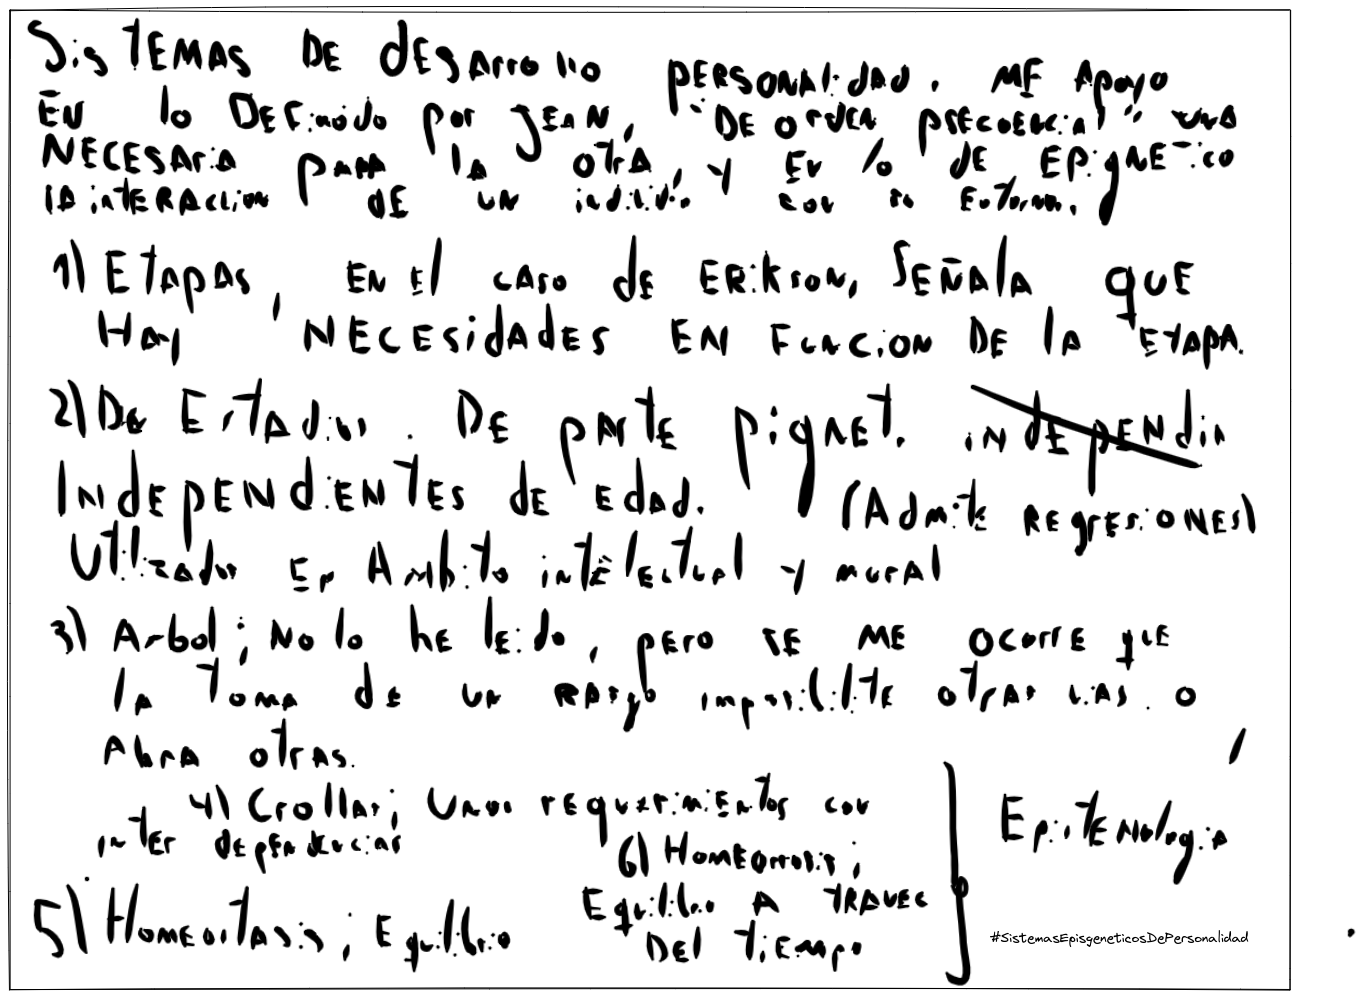 SisTEMAS DE dESArrollo PERSONAlidAd. ME Apoyo
EN lo DEFinido por JEAN, "DE OrdEN psecuencial" UNA
NECESAriA pArA lA OTrA, y EN lo dE EpigNETico
lA iNTERAcción dE UN individ. con su Entorno.
1) ETApAS, EN El CASO dE ERikson, SEÑAlA qUE
HAy NECESidAdES EN FUNCiON DE lA ETAPA.
2) De EstAdios. DE pArTE piGNET. iNdEpENdin
INdEpENdiENTES dE EdAd. (AdmiTE REgresiONES)
UTilizAdos En AMbiTo inTElecTuAl y morAl
3) Arbol; No lo hE lEido, pEro SE ME ocorrE quE
lA TomA dE UN RAsgo imposibiliTE oTrAs viAs. o
AbrA oTrAs.
4) CrollAr; Unos rEquErimiEnTos con
inTEr dEpEndEnciAs
6) HomEorrosis;
EquilibriO A TRAVEC
DEl TiEmpo
5) HomEosTAsis; Equilibrio
EpiTENologiA
#SistemasEpisgeneticosDePersonalidad